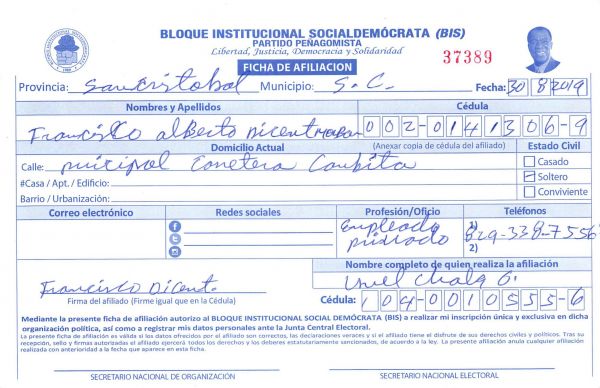 BLOQUE INSTITUCIONAL SOCIALDEMÓCRATA (BIS)
PARTIDO PEÑAGOMISTA
Libertad, Justicia, Democracia y Solidaridad
37389
FICHA DE AFILIACION
Provincia: San Cristobal Municipio: S.C. Fecha: 30 8 2019
Nombres y Apellidos Cédula
Francisco Alberto Dicent 002-0141306-9
Domicilio Actual (Anexar copia de cédula del afiliado) Estado Civil
Calle: principal Carretera Cambita Casado
#Casa / Apt. / Edificio: Soltero
Barrio / Urbanización: Conviviente
Correo electrónico Redes sociales Profesión/Oficio Teléfonos
Empleado privado 1) 829-338-7556
2)
Nombre completo de quien realiza la afiliación
Francisco Dicent.
Firma del afiliado (Firme igual que en la Cédula) Cédula: 104-0010555-6
Mediante la presente ficha de afiliación autorizo al BLOQUE INSTITUCIONAL SOCIAL DEMÓCRATA (BIS) a realizar mi inscripción única y exclusiva en dicha
organización política, así como a registrar mis datos personales ante la Junta Central Electoral.
La presente ficha de afiliación es válida si los datos ofrecidos por el afiliado son correctos, las declaraciones veraces y si el afiliado tiene el disfrute de sus derechos civiles y políticos. Tras su
recepción, sello y firmas autorizadas el afiliado ejercerá todos los derechos y los deberes estatutariamente sancionados, de acuerdo a la ley. La presente afiliación anula cualquier afiliación
realizada con anterioridad a la fecha que aparece en esta ficha.
SECRETARIO NACIONAL DE ORGANIZACIÓN SECRETARIO NACIONAL ELECTORAL